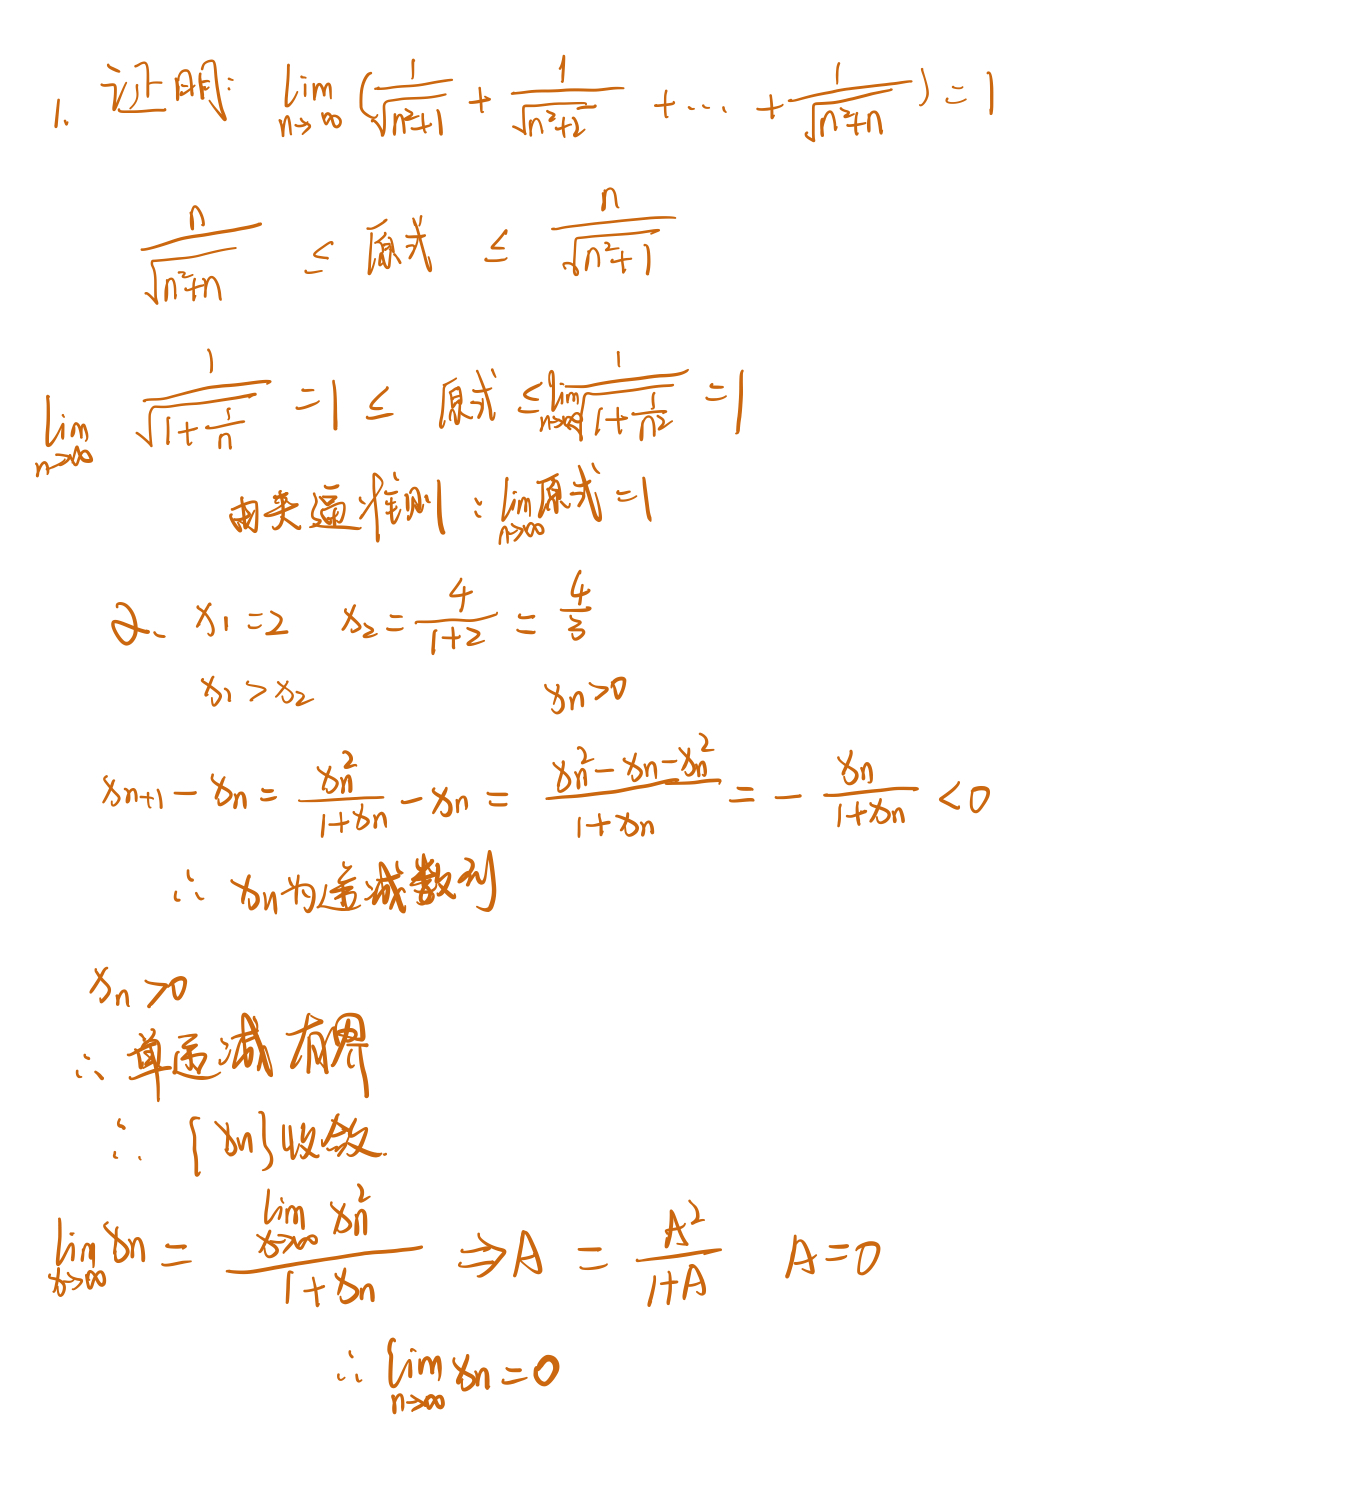 1. 证明: lim n→∞ (1/√(n²+1) + 1/√(n²+2) + ··· + 1/√(n²+n)) = 1
n/√(n²+n) ≤ 原式 ≤ n/√(n²+1)
lim n→∞ 1/√(1+1/n) = 1 ≤ 原式 ≤ lim n→∞ 1/√(1+1/n²) = 1
由夹逼准则: lim n→∞ 原式 = 1
2、 x₁=2 x₂ = 4/(1+2) = 4/3
x₁ > x₂ xn>0
xn+1 − xn = xn²/(1+xn) − xn = (xn² − xn − xn²)/(1+xn) = − xn/(1+xn) < 0
∴ xn为递减数列
xn >0
∴ 单递减有界
∴ {xn}收敛
lim x→∞ xn = lim x→∞ xn²/(1+xn) ⇒ A = A²/(1+A) A=0
∴ lim n→∞ xn = 0